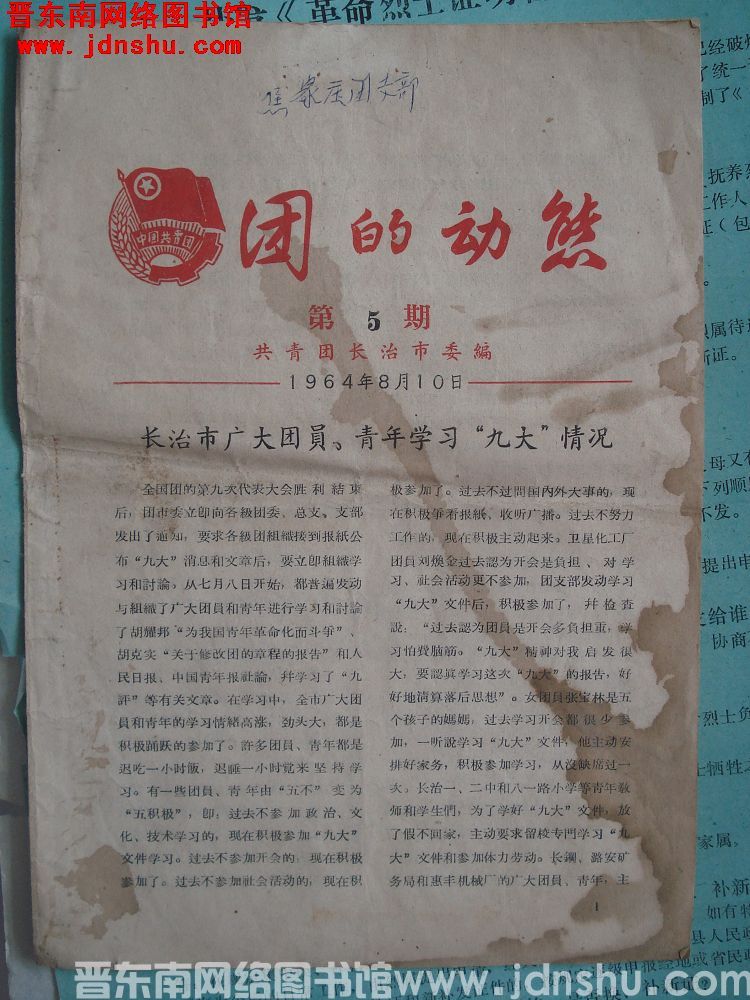 晋东南网络图书馆
www.jdnshu.com
革命烈士证明
焦家庄团支部
中国共青团
团的动态
第 5 期
共青团长治市委编
1964年8月10日
长治市广大团員、青年学习“九大”情况
全国团的第九次代表大会胜利結束
后，团市委立即向各級团委、总支、支部
发出了通知，要求各級团組織接到报紙公
布“九大”消息和文章后，要立即組織学
习和討論。从七月八日开始，都普遍发动
与組織了广大团員和青年进行学习和討論
了胡耀邦“为我国青年革命化而斗爭”、
胡克实“关于修改团的章程的报告”和人
民日报、中国青年报社論，幷学习了“九
評”等有关文章。在学习中，全市广大团
員和青年的学习情緒高涨，劲头大，都是
积极踊跃的参加了。許多团員、青年都是
迟吃一小时飯，迟睡一小时觉来坚持学
习。有一些团員、青年由“五不”变为
“五积极”，即：过去不参加政治、文
化、技术学习的，现在积极参加“九大”
文件学习。过去不参加开会的，现在积极
参加了。过去不参加社会活动的，现在积
极参加了。过去不过問国內外大事的，现
在积极争看报紙、收听广播。过去不努力
工作的，现在积极主动起来。卫星化工厂
团員刘焕金过去認为开会是負担、对学
习、社会活动更不参加，团支部发动学习
“九大”文件后，积极参加了，幷检查
說：“过去認为团員是开会多負担重，学
习怕費脑筋。“九大”精神对我启发很
大，要認眞学习这次“九大”的报告，好
好地清算落后思想”。女团員张宝林是五
个孩子的媽媽，过去学习开会都很少参
加，一听說学习“九大”文件，他主动安
排好家务，积极参加学习，从沒缺席过一
次。长治一、二中和八一路小学等青年敎
师和学生們，为了学好“九大”文件，放
了假不回家，主动要求留校专門学习“九
大”文件和参加体力劳动。长鋼、潞安矿
务局和惠丰机械厂的广大团員、青年，主
1
已经破
了统一
制了《
抚养
工作人
证（包
属待
新证。
母又
下列顺
不发。
提出申
给谁
协商
烈士负
士牺牲
家属。
补新
如有特
县人民政
晋东南网络图书馆www.jdnshu.com